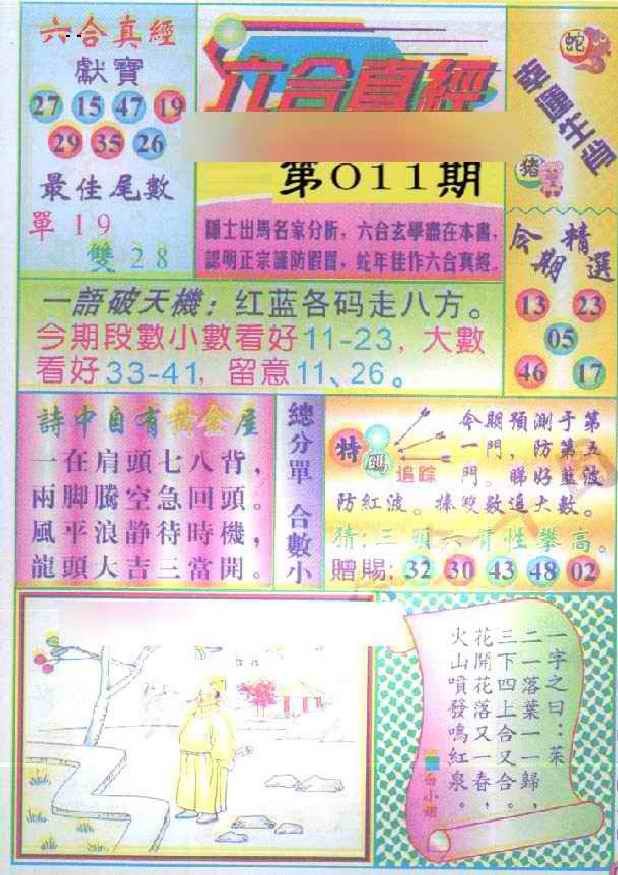 六合真經
獻寶
27 15 47 19
29 35 26
最佳尾數
單 19
雙 28
六合真經
第011期
隱士出馬名家分析,六合玄學盡在本書,
認明正宗謹防假冒,蛇年佳作六合真經.
蛇
猪
今期精選
13 23
05
46 17
一語破天機:红蓝各码走八方。
今期段數小數看好11-23,大數
看好33-41,留意11、26。
詩中自有黃金屋
一在肩頭七八背,
兩脚騰空急回頭。
風平浪静待時機,
龍頭大吉三當開。
總分單 合數小
特碼
追踪
今期預測于第
一門,防第五
門。睇好藍波
防紅波。揍双数追大数。
猜:三頭六肖性攀高。
贈賜:32 30 43 48 02
一字之曰:茱
二一落葉一一歸,
三下四上合又合。
花開花落又一春,
火山噴發鳴紅泉。